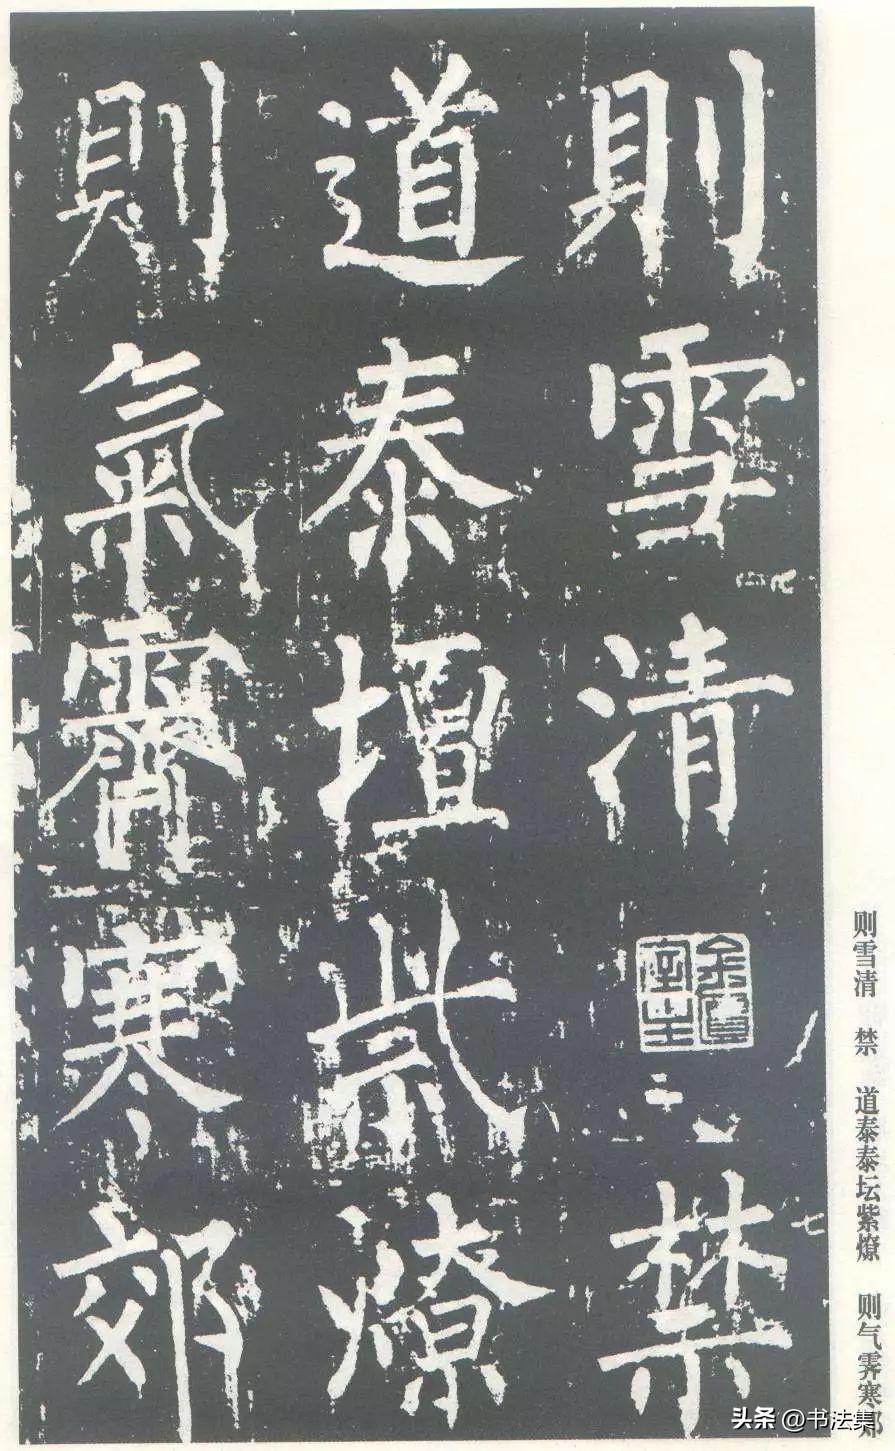 則雪清禁
道泰壇祡燎
則氣霽寒郊
则雪清 禁 道泰泰坛紫燎 则气霁寒郊
头条 @书法集